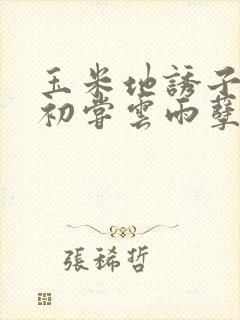 玉米地誘子
初嘗雲雨孽
張稀哲